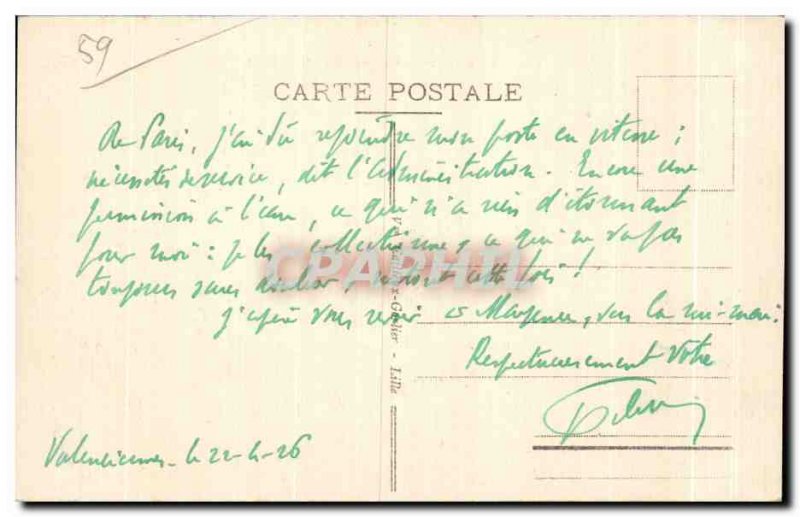 59
CARTE POSTALE
De Paris, j'ai dû rejoindre mon poste en vitesse ;
nécessités de service, dit l'Administration. Encore une
permission à l'eau, ce qui n'a rien d'étonnant
pour moi : je les collectionne, ce qui ne va pas
toujours sans douleur, surtout cette fois !
J'espère vous revoir à, vers la mi-mai.
Respectueusement Vôtre
Valenciennes - le 22-4-26
CPARAMA
Cordier - Lille